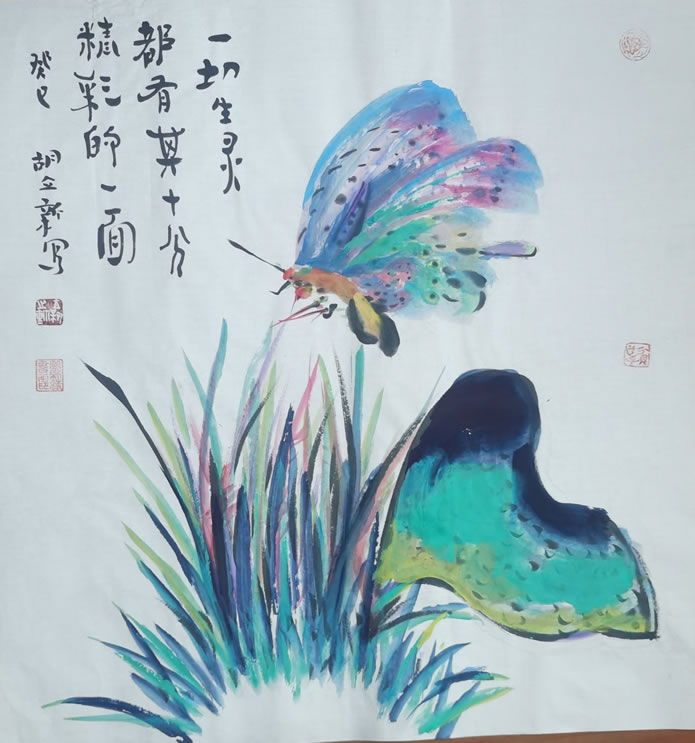 一切生灵
都有其十分
精彩的一面
癸巳 胡立新写